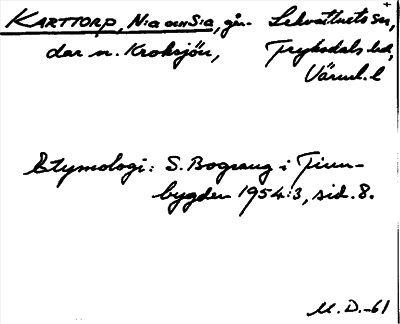 KARTTORP, N:a och S:a, går-
dar n. Kroksjön,
Lekvattnets sn,
Fryksdals hd,
Värml. l
Etymologi: S. Bograng i Finn-
bygden 1954:3, sid. 8.
M. D. -61